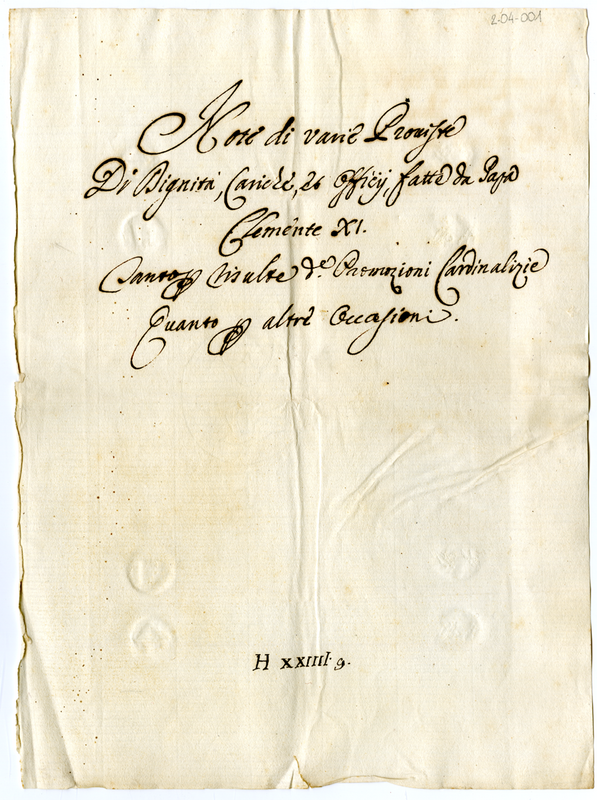 2-04-001
Note di varie Proviste
Di Dignità, Cariche, et Officij, fatte da Papa
Clemente XI.
Tanto p Risulte d.e Promozioni Cardinalizie
Quanto p altre Occasioni.
H XXIIII. 9.